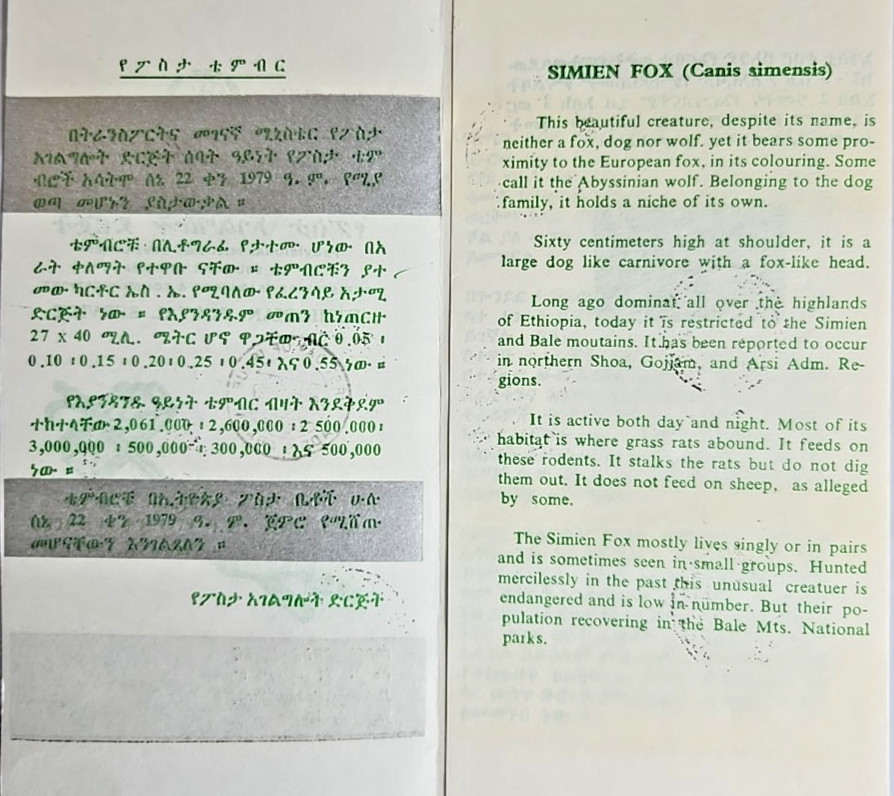 የፖስታ ቴምብር
በትራንስፖርትና መገናኛ ሚኒስቴር የፖስታ
አገልግሎት ድርጅት ሰባት ዓይነት የፖስታ ቴም
ብሮች አሳትሞ ሰኔ 22 ቀን 1979 ዓ. ም. የሚያ
ወጣ መሆኑን ያስታውቃል ።
ቴምብሮቹ በሊቶግራፌ የታተሙ ሆነው በአ
ራት ቀለማት የተዋቡ ናቸው ። ቴምብሮቹን ያተ
መው ካርቶር ኤስ . ኤ. የሚባለው የፈረንሳይ አታሚ
ድርጅት ነው ። የእያንዳንዱም መጠን ከነጠርዙ
27 x 40 ሚሊ. ሜትር ሆኖ ዋጋቸው ብር 0.05 ፡
0.10 ፡ 0.15 ፡ 0.20 ፡ 0.25 ፡ 0.45 ፡ እና 0.55 ነው ።
የእያንዳንዱ ዓይነት ቴምብር ብዛት እንደቅደም
ተከተላቸው 2,061.000 ፡ 2,600,000 ፡ 2 500.000 ፡
3,000,000 ፡ 500,000 ፡ 300,000 ፡ እና 500,000
ነው ።
ቴምብሮቹ በኢትዮጵያ ፖስታ ቤቶች ሁሉ
ሰኔ 22 ቀን 1979 ዓ. ም. ጀምሮ የሚሸጡ
መሆናቸውን እንገልጻለን ።
የፖስታ አገልግሎት ድርጅት
SIMIEN FOX (Canis simensis)
This beautiful creature, despite its name, is
neither a fox, dog nor wolf. yet it bears some pro-
ximity to the European fox, in its colouring. Some
call it the Abyssinian wolf. Belonging to the dog
family, it holds a niche of its own.
Sixty centimeters high at shoulder, it is a
large dog like carnivore with a fox-like head.
Long ago dominat all over the highlands
of Ethiopia, today it is restricted to the Simien
and Bale moutains. It has been reported to occur
in northern Shoa, Gojjam, and Arsi Adm. Re-
gions.
It is active both day and night. Most of its
habitat is where grass rats abound. It feeds on
these rodents. It stalks the rats but do not dig
them out. It does not feed on sheep, as alleged
by some.
The Simien Fox mostly lives singly or in pairs
and is sometimes seen in small groups. Hunted
mercilessly in the past this unusual creatuer is
endangered and is low in number. But their po-
pulation recovering in the Bale Mts. National
parks.